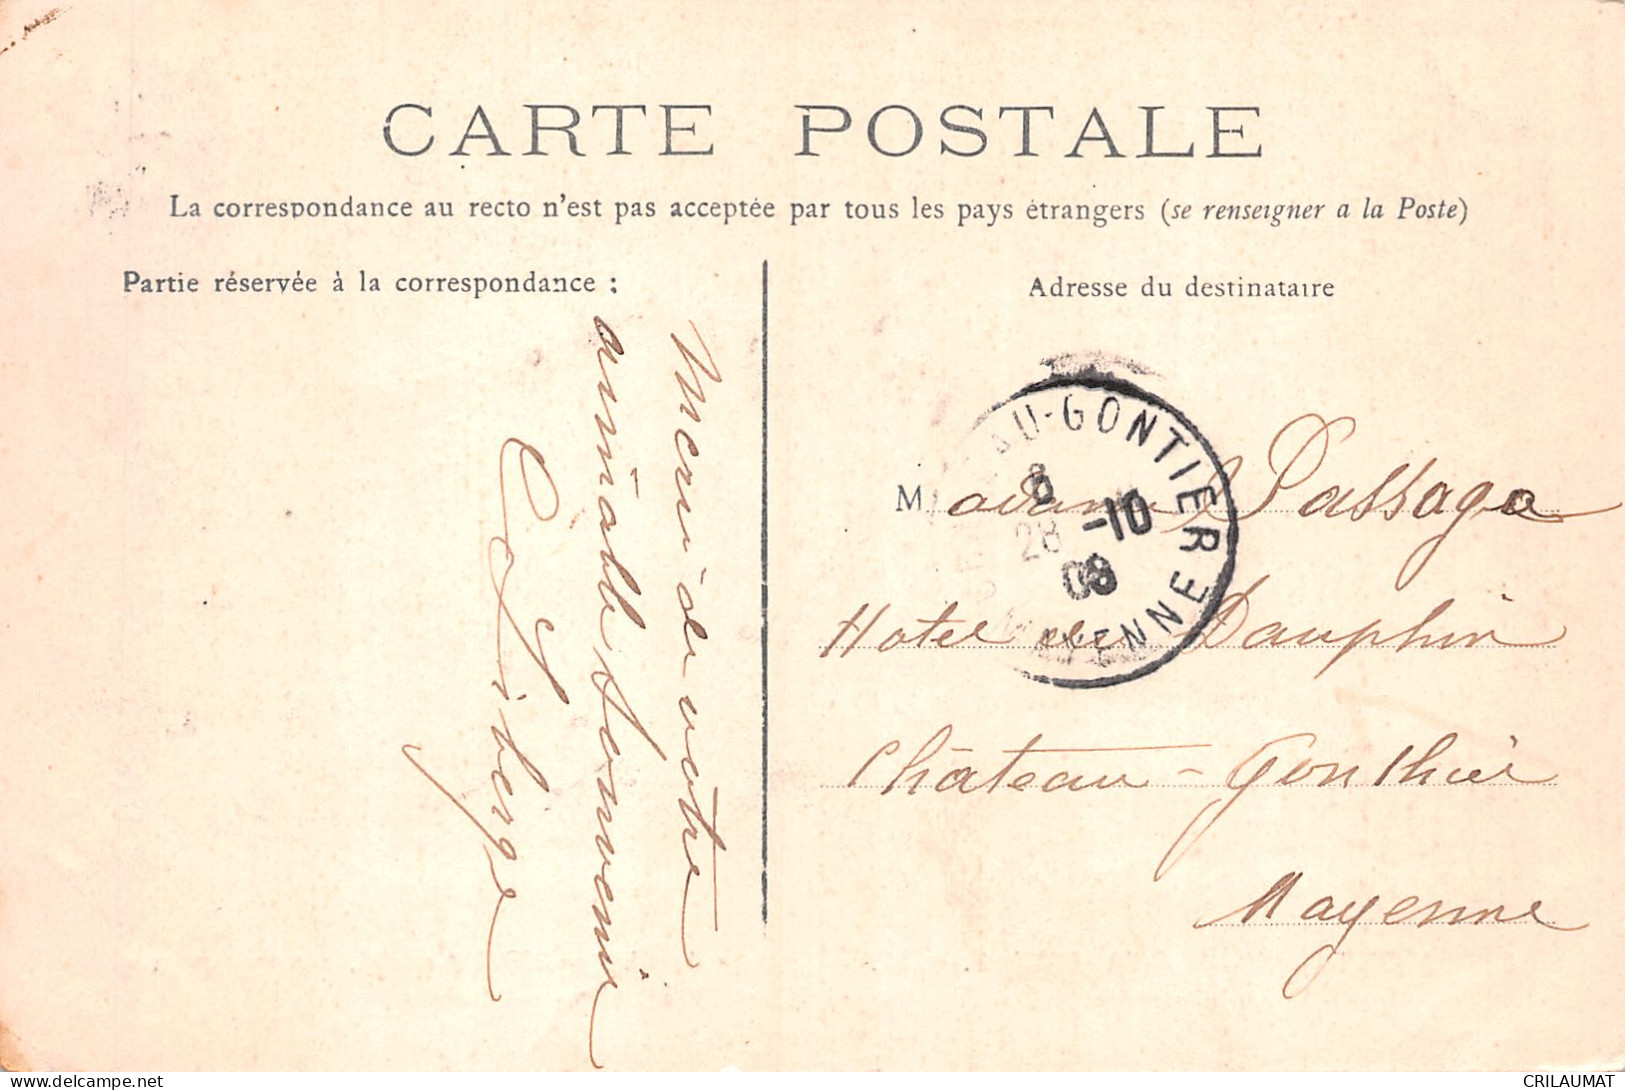 CARTE POSTALE
La correspondance au recto n'est pas acceptée par tous les pays étrangers (se renseigner a la Poste)
Partie réservée à la correspondance :
Merci de votre
aimable souvenir
Adresse du destinataire
AU-GONTIER
8
28 -10
09
MAYENNE
Madame Passaga
Hotel du Dauphin
Château-Gonthier
Mayenne
delcampe.net
CRILAUMAT